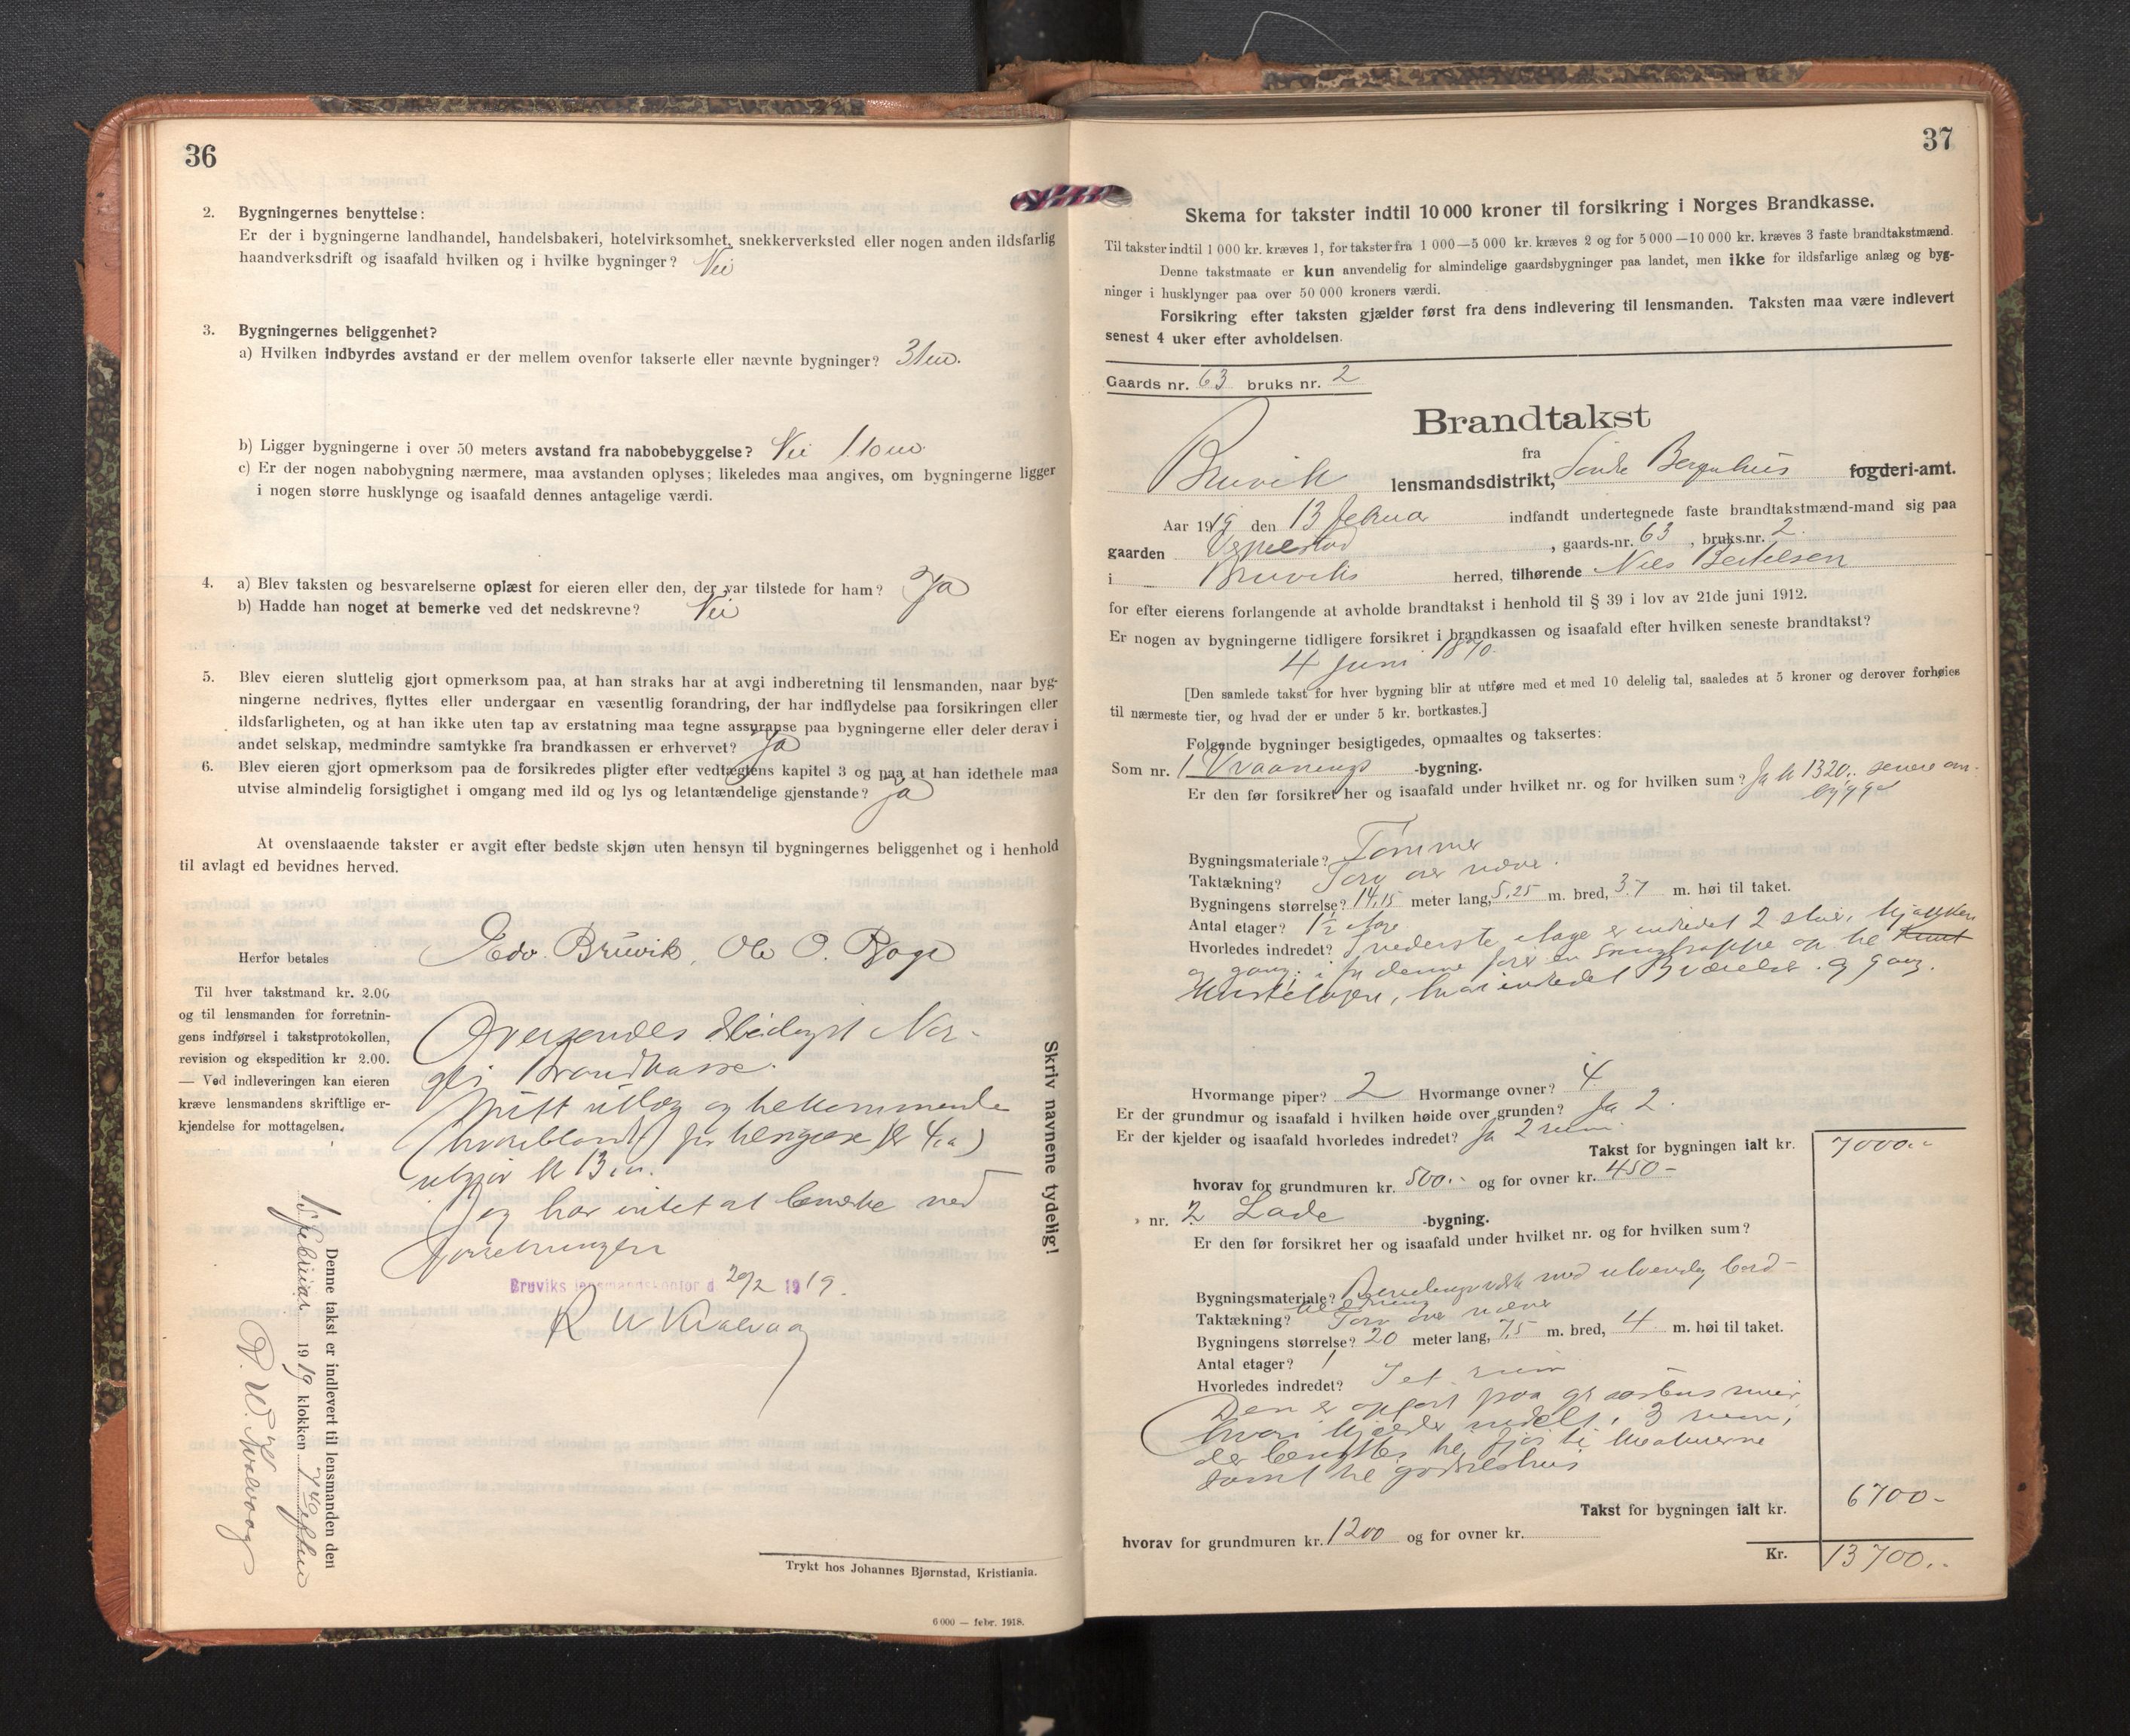 36
2. Bygningernes benyttelse:
Er der i bygningerne landhandel, handelsbakeri, hotelvirksomhet, snekkerverksted eller nogen anden ildsfarlig
haandverksdrift og isaafald hvilken og i hvilke bygninger? Nei
3. Bygningernes beliggenhet?
a) Hvilken indbyrdes avstand er der mellem ovenfor takserte eller nævnte bygninger? 31 m.
b) Ligger bygningerne i over 50 meters avstand fra nabobebyggelse? Nei
c) Er der nogen nabobygning nærmere, maa avstanden oplyses; likeledes maa angives, om bygningerne ligger
i nogen større husklynge og isaafald dennes antagelige værdi.
4. a) Blev taksten og besvarelserne oplæst for eieren eller den, der var tilstede for ham? Ja
b) Hadde han noget at bemerke ved det nedskrevne? Nei
5. Blev eieren sluttelig gjort opmerksom paa, at han straks har at avgi indberetning til lensmanden, naar byg-
ningerne nedrives, flyttes eller undergaar en væsentlig forandring, der har indflydelse paa forsikringen eller
ildsfarligheten, og at han ikke uten tap av erstatning maa tegne assuranse paa bygningerne eller deler derav i
andet selskap, medmindre samtykke fra brandkassen er erhvervet? Ja
6. Blev eieren gjort opmerksom paa de forsikredes pligter efter vedtægtens kapitel 3 og paa at han idethele maa
utvise almindelig forsigtighet i omgang med ild og lys og letantændelige gjenstande? Ja
At ovenstaaende takster er avgit efter bedste skjøn uten hensyn til bygningernes beliggenhet og i henhold
til avlagt ed bevidnes herved.
Edv. Bruvik, Ole O. Boge
Herfor betales
Til hver takstmand kr. 2.00
og til lensmanden for forretnin-
gens indførsel i takstprotokollen,
revision og ekspedition kr 2.00.
— Ved indleveringen kan eieren
kræve lensmandens skriftlige er-
kjendelse for mottagelsen.
Oversendes Nor-
ges Brandkasse.
Mitt utlæg og tilkommende
(hvoriblandt for kr 4,00)
utgjør kr 13,00.
Jeg har intet at bemerke ved
forretningen
Bruviks lensmandskontor d 20/2 1919.
R W Kvalvaag
Skriv navnene tydelig!
Denne takst er indlevert til lensmanden den
15 februar 1919 klokken 7 eftm
R. W. Kvalvaag
Trykt hos Johannes Bjørnstad, Kristiania.
6 000 — febr. 1918.
37
Skema for takster indtil 10 000 kroner til forsikring i Norges Brandkasse.
Til takster indtil 1 000 kr. kræves 1, for takster fra 1 000—5 000 kr. kræves 2 og for 5 000—10 000 kr. kræves 3 faste brandtakstmænd.
Denne takstmaate er kun anvendelig for almindelige gaardsbygninger paa landet, men ikke for ildsfarlige anlæg og byg-
ninger i husklynger paa over 50 000 kroners værdi.
Forsikring efter taksten gjælder først fra dens indlevering til lensmanden. Taksten maa være indlevert
senest 4 uker efter avholdelsen.
Gaards nr. 63 bruks nr. 2
Brandtakst
fra
Bruvik lensmandsdistrikt, Søndre Bergenhus fogderi-amt.
Aar 1919 den 13 februar indfandt undertegnede faste brandtakstmænd-mand sig paa
gaarden , gaards-nr. 63, bruks.nr. 2.
i Bruviks herred, tilhørende Nils Bertelsen
for efter eierens forlangende at avholde brandtakst i henhold til § 39 i lov av 21de juni 1912.
Er nogen av bygningerne tidligere forsikret i brandkassen og isaafald efter hvilken seneste brandtakst?
4 Juni 1870.
[Den samlede takst for hver bygning blir at utføre med et med 10 delelig tal, saaledes at 5 kroner og derover forhøies
til nærmeste tier, og hvad der er under 5 kr. bortkastes.]
Følgende bygninger besigtigedes, opmaaltes og taksertes:
Som nr. 1 Vaanings -bygning.
Er den før forsikret her og isaafald under hvilket nr. og for hvilken sum? Ja kr 1320.. senere om-
bygget
Bygningsmateriale? Tømmer
Taktækning? Torv over næver.
Bygningens størrelse? 14,15 meter lang, 5,25 m. bred, 3,7 m. høi til taket.
Antal etager? 1½ etage
Hvorledes indredet? I nederste etage er indredet 2 stuer, kjøkken
og gang; fra denne fører en svingtrappe op til Kvist
Kvistetagen, hvori indredet 3 værelser og gang.
Hvormange piper? 2 Hvormange ovner? 4
Er der grundmur og isaafald i hvilken høide over grunden? Ja 2.
Er der kjelder og isaafald hvorledes indredet? Ja 2 rum.
Takst for bygningen ialt kr. 7000.-
hvorav for grundmuren kr. 500.- og for ovner kr. 450-
» nr. 2 Lade -bygning.
Er den før forsikret her og isaafald under hvilket nr. og for hvilken sum?
Bygningsmateriale? Bindingsverk med utvendig bord-
klædning
Taktækning? Torv over næver
Bygningens størrelse? 20 meter lang, 7,5 m. bred, 4 m. høi til taket.
Antal etager? 1
Hvorledes indredet? I et rum
Den er opført paa graastensmur,
hvori kjelder inddelt i 3 rum,
der benyttes til fjøs til kreaturerne
samt til gjødselhus
Takst for bygningen ialt kr. 6700-
hvorav for grundmuren kr. 1200 og for ovner kr.
Kr. 13700..